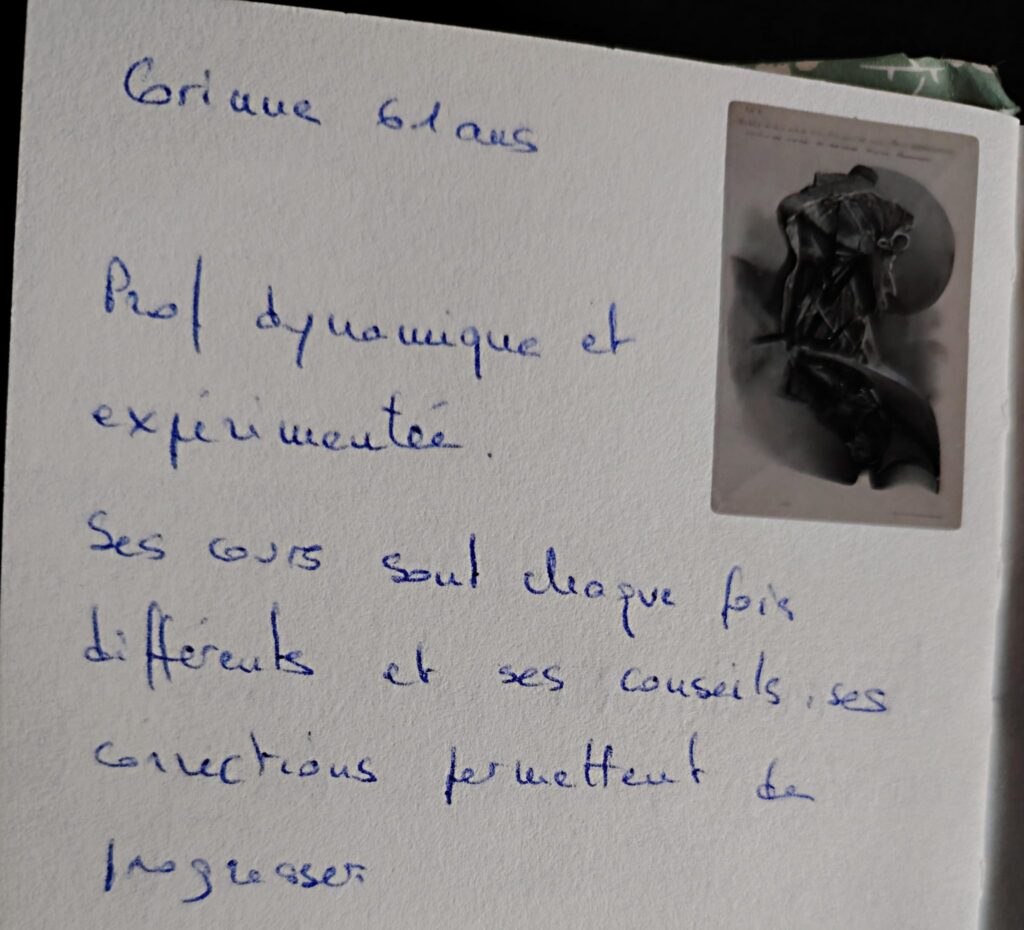 Corinne 61 ans
Prof dynamique et
expérimentée.
Ses cours sont chaque fois
différents et ses conseils, ses
corrections permettent de
progresser